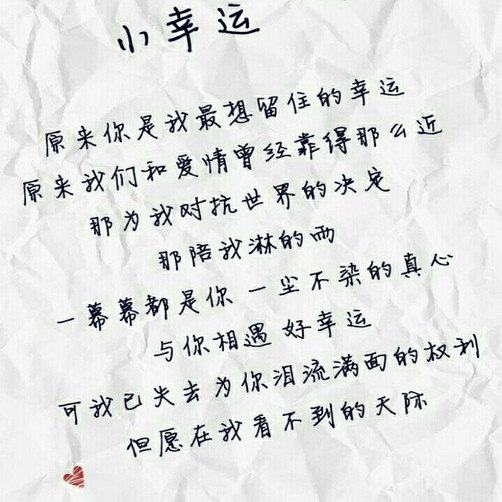 小幸运
原来你是我最想留住的幸运
原来我们和爱情曾经靠得那么近
那为我对抗世界的决定
那陪我淋的雨
一幕幕都是你 一尘不染的真心
与你相遇 好幸运
可我已失去为你泪流满面的权利
但愿在我看不到的天际